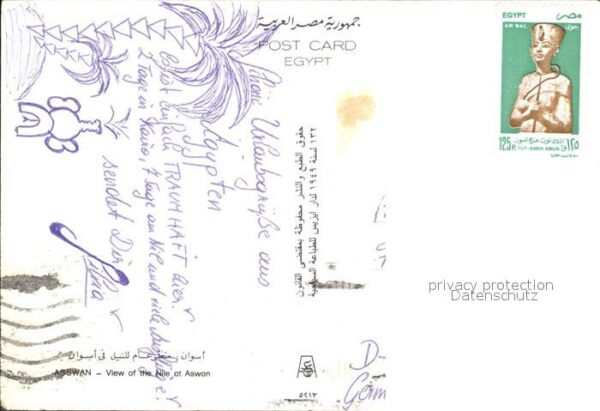 جمهورية مصر العربية
POST CARD
EGYPT
EGYPT مصر
AIR MAIL
125 P. TUT-ANKH AMUN ١٢٥
Schöne Urlaubsgrüße aus
Ägypten
Es ist einfach TRAUMHAFT hier.
2 Tage in Kairo, 7 Tage am Nil und viele Ausflüge!
sendet Dir
حقوق الطبع والنشر محفوظة بمقتضى القانون
١٣٢ لسنة ١٩٤٩ لدار ايزيس للطباعة السياحية
privacy protection
Datenschutz
D-
Germ
أسوان - منظر عام للنيل في أسوان
ASSWAN – View of the Nile at Aswan
٥٢١٣